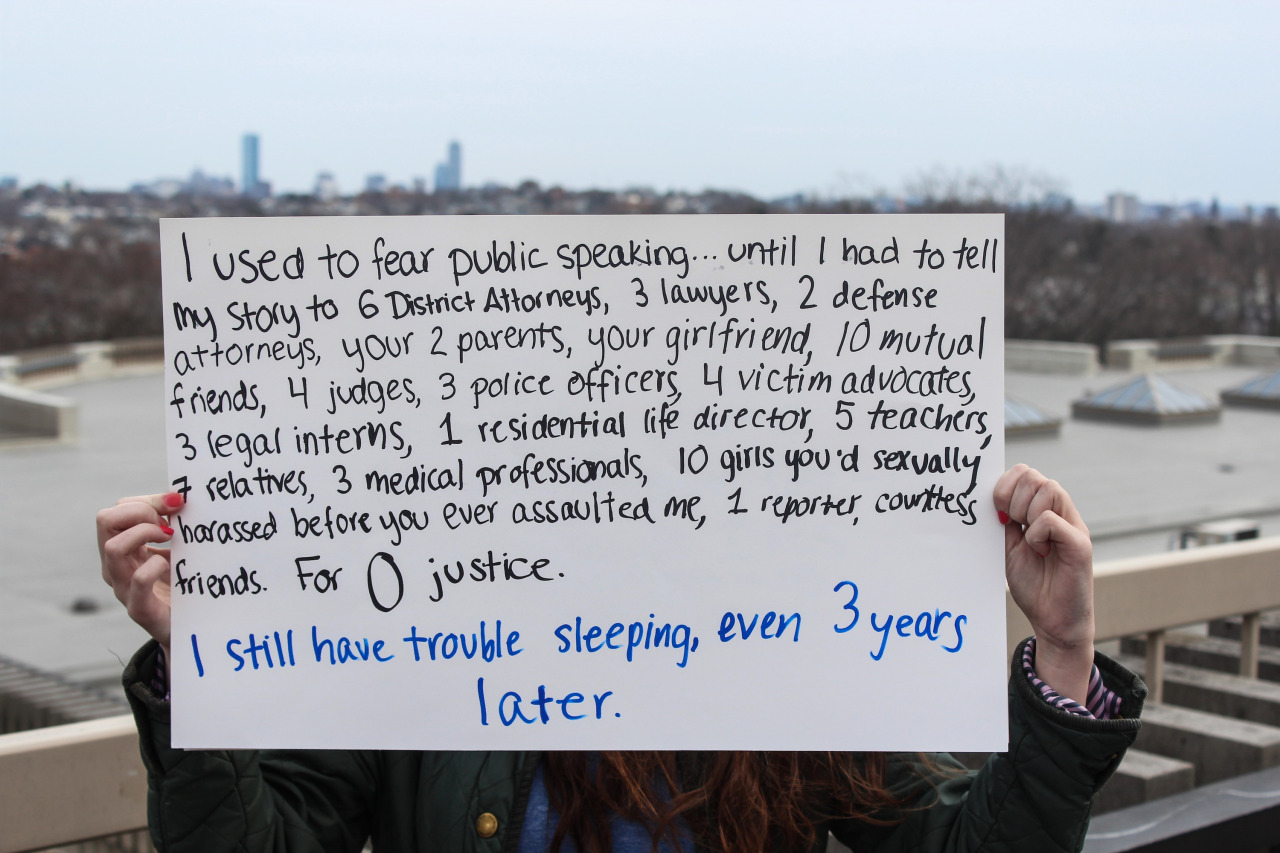 I used to fear public speaking... until I had to tell
my story to 6 District Attorneys, 3 lawyers, 2 defense
attorneys, your 2 parents, your girlfriend, 10 mutual
friends, 4 judges, 3 police officers, 4 victim advocates,
3 legal interns, 1 residential life director, 5 teachers,
7 relatives, 3 medical professionals, 10 girls you'd sexually
harassed before you ever assaulted me, 1 reporter, countless
friends. For 0 justice.
I still have trouble sleeping, even 3 years
later.